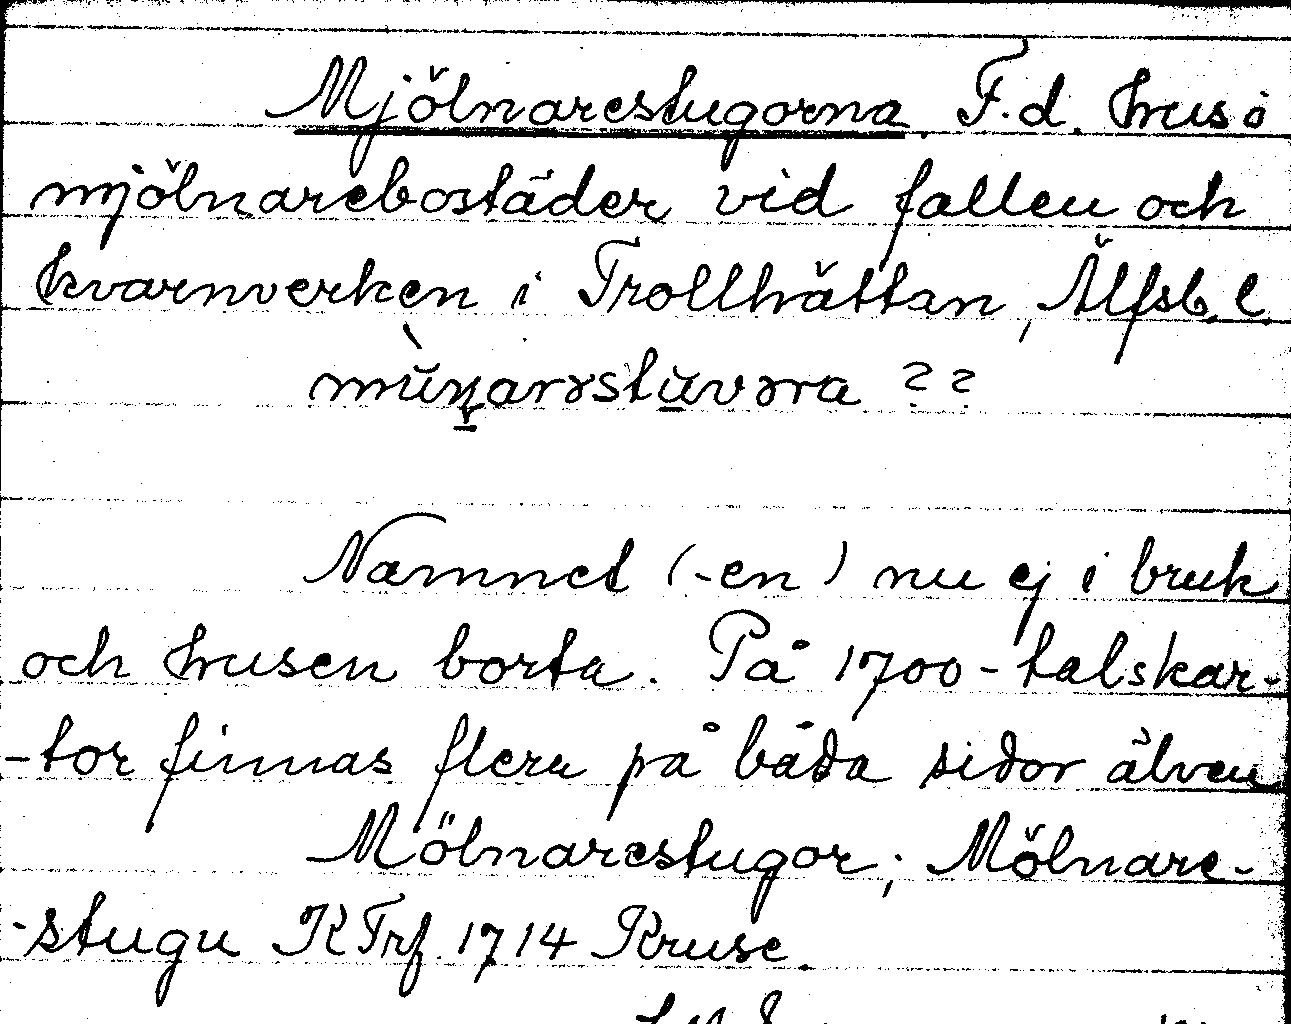 Mjölnarestugorna. F.d. hus o
mjölnarebostäder vid fallen och
kvarnverken i Trollhättan, Älfsb. l.
mùɳarəstu̲vəra ??
Namnet (-en) nu ej i bruk
och husen borta. På 1700-talskar-
-tor finnas flera på båda sidor älven
Mölnarestugor; Mölnare-
-stugu KTrf. 1714 Kruse.